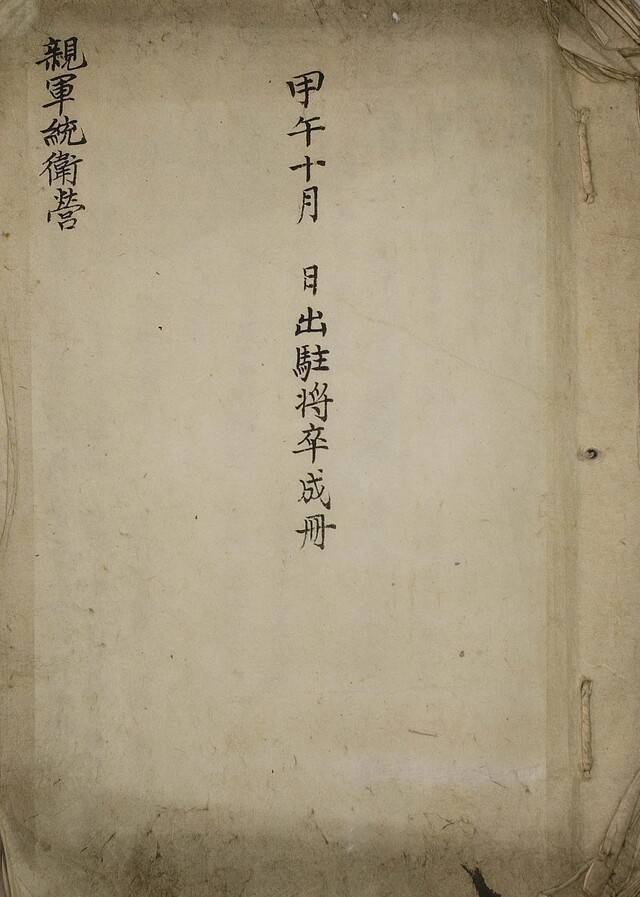 甲午十月　日出駐將卒成冊
親軍統衛營